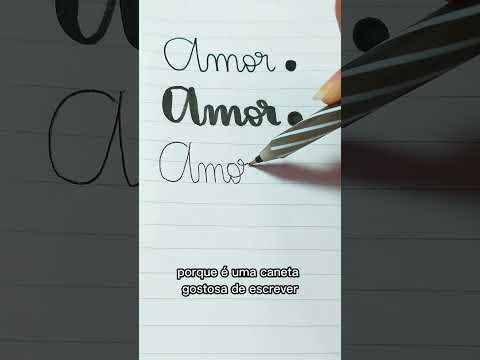 Amor.
Amor.
Amo
porque é uma caneta
gostosa de escrever